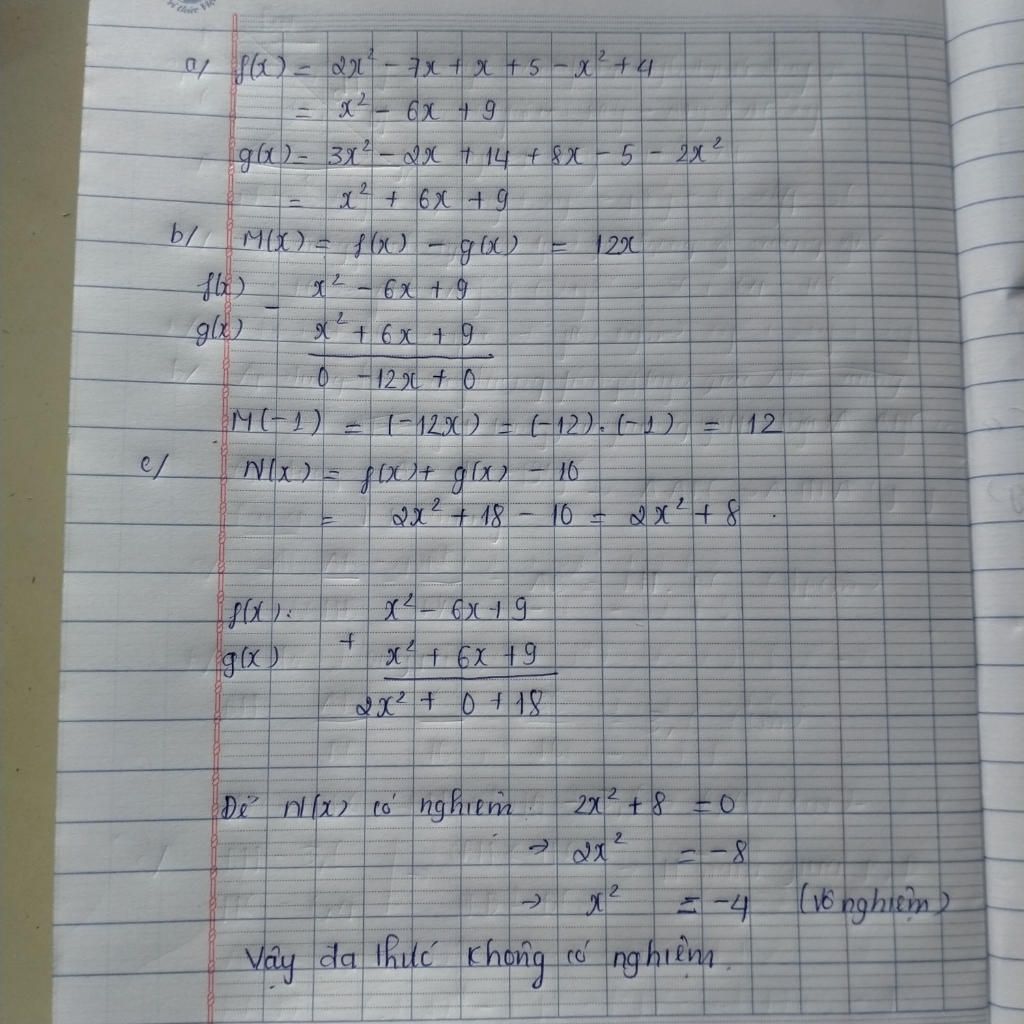 a/ f(x) = 2x² - 7x + x + 5 - x² + 4
= x² - 6x + 9
g(x) = 3x² - 2x + 14 + 8x - 5 - 2x²
= x² + 6x + 9
b/ M(x) = f(x) - g(x) = 12x
f(x) - x² - 6x + 9
g(x) x² + 6x + 9
0 - 12x + 0
M(-1) = (-12x) = (-12).(-1) = 12
c/ N(x) = f(x) + g(x) - 10
= 2x² + 18 - 10 = 2x² + 8.
f(x): x² - 6x + 9
g(x) + x² + 6x + 9
2x² + 0 + 18
Để N(x) có nghiệm: 2x² + 8 = 0
→ 2x² = -8
→ x² = -4 (vô nghiệm)
Vậy đa thức không có nghiệm.